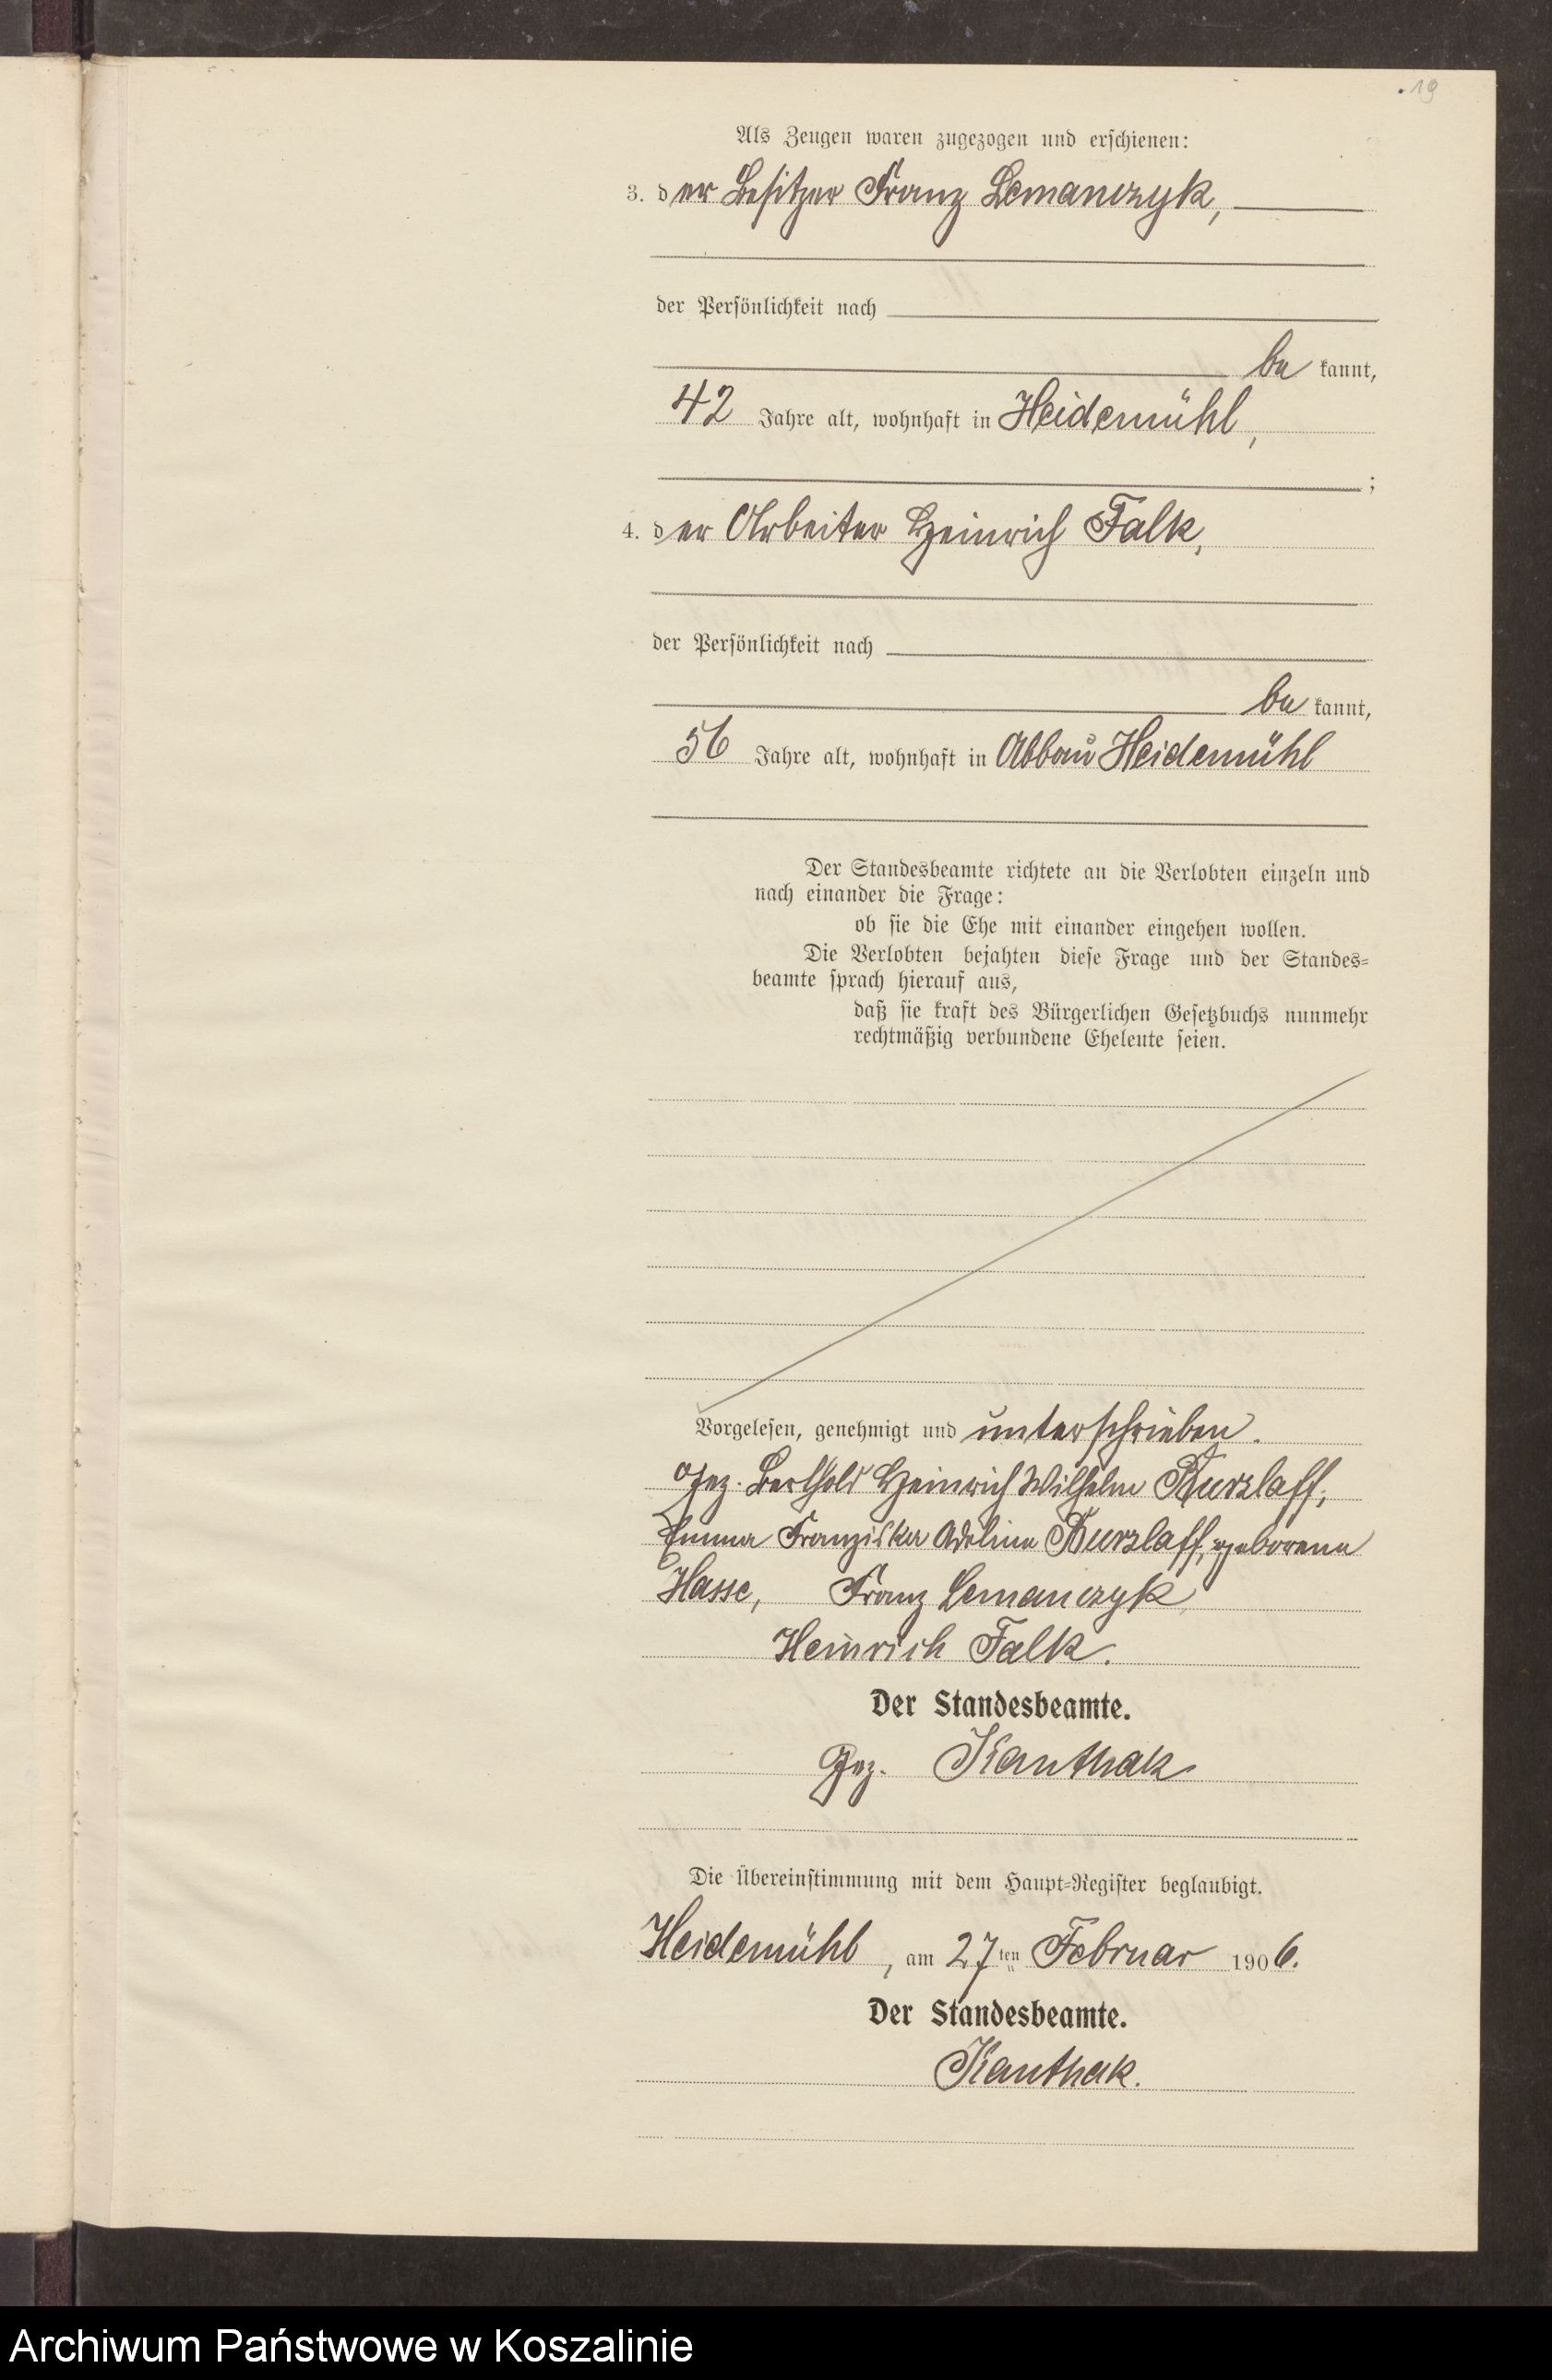 19
Als Zeugen waren zugezogen und erschienen:
3. der Besitzer Franz Lemanczyk,
der Persönlichkeit nach
be kannt,
42 Jahre alt, wohnhaft in Heidemühl,
;
4. der Arbeiter Heinrich Falk,
der Persönlichkeit nach
be kannt,
56 Jahre alt, wohnhaft in Abbau Heidemühl
Der Standesbeamte richtete an die Verlobten einzeln und
nach einander die Frage:
ob sie die Ehe mit einander eingehen wollen.
Die Verlobten bejahten diese Frage und der Standes-
beamte sprach hierauf aus,
daß sie kraft des Bürgerlichen Gesetzbuchs nunmehr
rechtmäßig verbundene Eheleute seien.
Vorgelesen, genehmigt und unterschrieben.
Gez. Berthold Heinrich Wilhelm Kurzlaff,
Emma Franziska Adeline Kurzlaff, geborene
Hasse, Franz Lemanczyk,
Heinrich Falk.
Der Standesbeamte.
Gez. Kanthak
Die Übereinstimmung mit dem Haupt-Register beglaubigt.
Heidemühl, am 27ten Februar 1906.
Der Standesbeamte.
Kanthak.
Archiwum Państwowe w Koszalinie